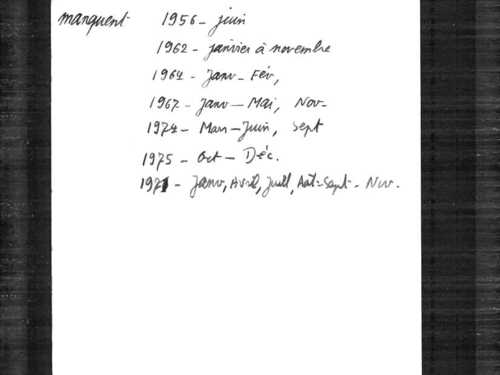 manquent 1956 - juin
1962 - janvier à novembre
1964 - Janv - Fév,
1967 - Janv - Mai, Nov-
1974 - Mars - Juin, Sept
1975 - Oct - Déc.
Janv, Avril, Juill, Aôt-Sept - Nov.